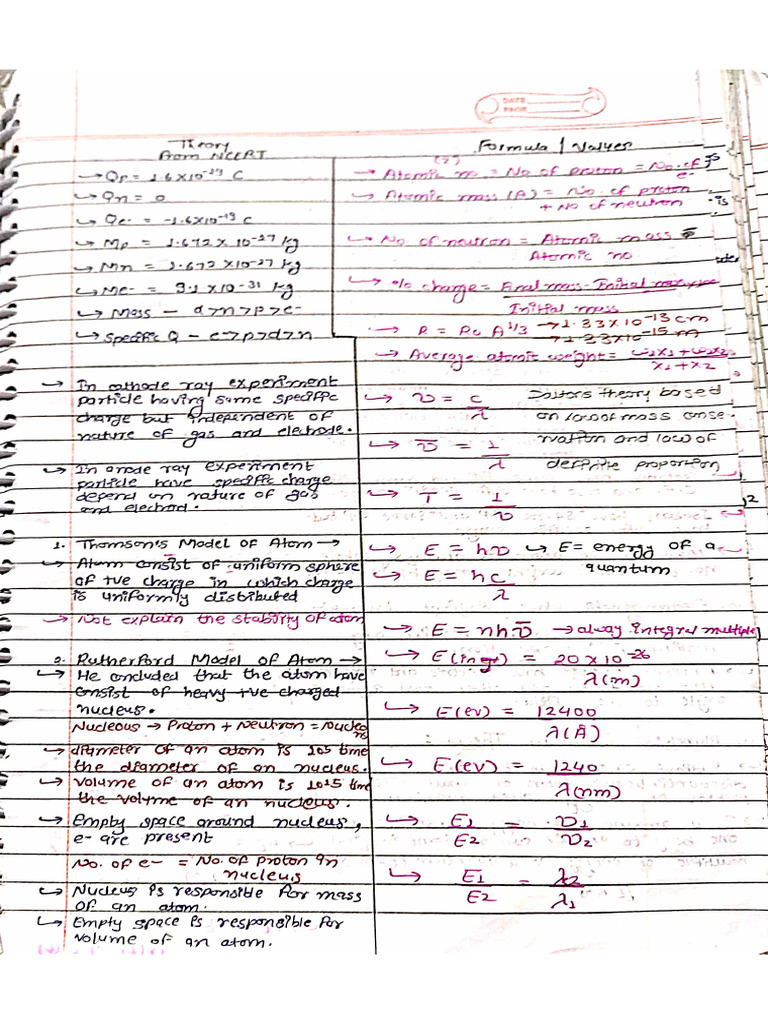 DATE
PAGE
Theory
from NCERT
→ Qp = 1.6×10⁻¹⁹ C
→ Qn = 0
→ Qe- = -1.6×10⁻¹⁹ C
→ Mp = 1.672 × 10⁻²⁷ kg
→ Mn = 1.672 ×10⁻²⁷ kg
→ Me- = 9.1 × 10⁻³¹ kg
→ Mass - α>n>p>e-
→ Specific Q - e>p>α>n
→ In cathode ray experiment
particle having same specific
charge but independent of
nature of gas and electrode.
→ In anode ray experiment
particle have specific charge
depend on nature of gas
and electrod.
1. Thomson's Model of Atom →
→ Atom consist of uniform sphere
of +ve charge in which charge
is uniformly distributed
→ Not explain the stability of atom
2. Rutherford Model of Atom →
→ He concluded that the atom have
consist of heavy +ve charged
nucleus.
Nucleous → Proton + Neutron = Nucleo
ns
→ diameter of an atom is 10⁵ time
the diameter of an nucleus.
→ Volume of an atom is 10¹⁵ time
the volume of an nucleus.
→ Empty space around nucleus,
e- are present
No. of e- = No. of proton in
nucleus
→ Nucleus is responsible for mass
of an atom.
→ Empty space is responsible for
volume of an atom.
Formula / Values
(z)
→ Atomic no = No of proton = No. of
e-
→ Atomic mass (A) = No. of proton
+ No of neutron
→ No of neutron = Atomic mass -
Atomic no
→ % charge = Final mass - Initial mass ×100
Initial mass
→ R = R₀ A^1/3 → 1.33×10⁻¹³ cm
→ 1.33×10⁻¹⁵ m
→ Average atomic weight = ω₁x₁ + ω₂x₂
x₁ + x₂
→ υ = c
λ
Daltons theory based
on law of mass conse-
rvation and law of
definite proportion
→ υ̅ = 1
λ
→ T = 1
υ
→ E = hυ → E = energy of a
quantum
→ E = hc
λ
→ E = nhυ̅ → alway integral multiple
→ E(in gr) = 20 × 10⁻²⁶
λ(m)
→ E(ev) = 12400
λ(Å)
→ E(ev) = 1240
λ(nm)
→ E₁ = υ₁
E₂ υ₂
→ E₁ = λ₂
E₂ λ₁